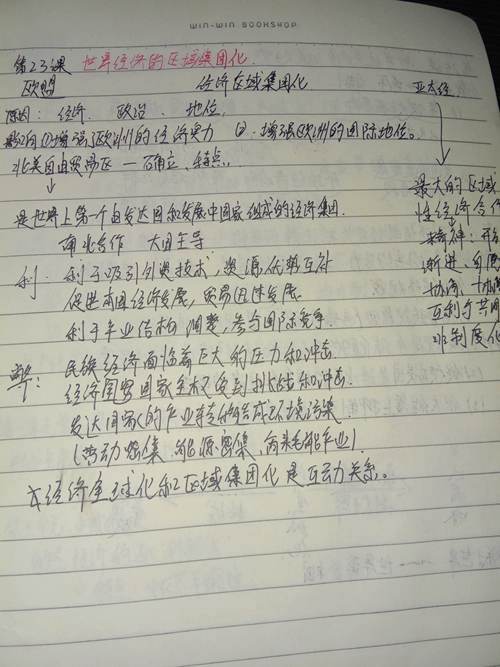 WIN-WIN BOOKSHOP
第23课 世界经济的区域集团化
欧盟 经济区域集团化 亚太经
原因: 经济. 政治. 地位.
影响 ①增强了欧洲的经济实力 ②. 增强欧洲的国际地位。
北美自由贸易区 — 确立、特点.
最大的区域
是世界上第一个由发达国和发展中国家组成的经济集团.
性经济合作
南北合作 大国主导
精神: 开
利. 利于吸引外资技术, 资源优势互补
渐进、自
促进本国经济发展, 贸易
协商、
利于产业结构 调整, 参与国际竞争.
互利与共同
非制度化
弊: 民族经济面临着巨大的压力和冲击.
经济国家主权受到挑战和冲击.
发达国家的产业转移造成环境污染
(劳动密集、能源密集、高
☆经济全球化和区域集团化是互动关系。